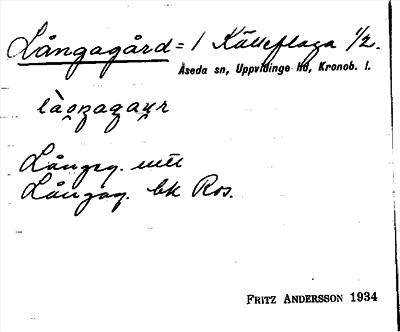 Långagård = 1 Källeflaga 1/2.
Åseda sn, Uppvidinge hd, Kronob. l.
Långg. utt
Långag. bk Ros.
FRITZ ANDERSSON 1934